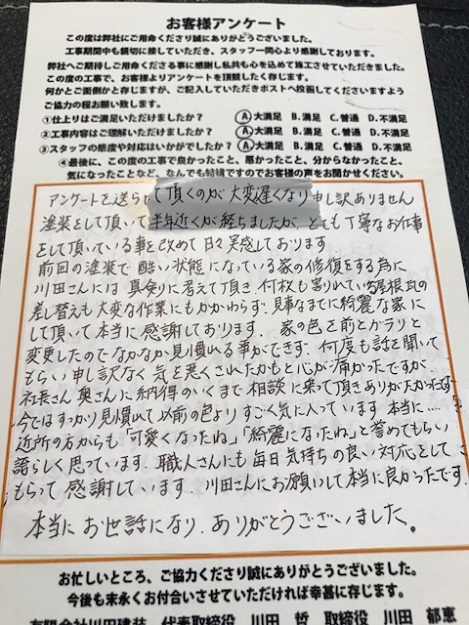 お客様アンケート
この度は弊社にご用命くださり誠にありがとうございました。
工事期間中も親切に接していただき、スタッフ一同心より感謝しております。
弊社へご期待しご用命くださる事に感謝し私共も心を込めて施工させていただきました。
この度の工事で、お客様よりアンケートを頂戴したく存じます。
何かとご面倒かと存じますが、ご記入していただきポストへ投函してくださいますよう
ご協力の程お願い致します。
①仕上りはご満足いただけましたか？ A.大満足 B.満足 C.普通 D.不満足
②工事内容はご理解いただけましたか？ A.大満足 B.満足 C.普通 D.不満足
③スタッフの態度や対応はいかがでしたか？ A.大満足 B.満足 C.普通 D.不満足
④最後に、この度の工事で良かったこと、悪かったこと、分からなかったこと、
気になったことなど、なんでも結構ですのでお客様の声をお聞かせください。
アンケートを送らせて頂くのが大変遅くなり申し訳ありません
塗装をして頂いて半年近くが経ちましたが、とても丁寧なお仕事
をして頂いている事を改めて日々実感しております
前回の塗装で酷い状態になっている家の修復をする為に
川田さんには真剣に考えて頂き何枚も割れている屋根瓦の
差し替えも大変な作業にもかかわらず、見事なまでに綺麗な家に
して頂いて本当に感謝しております。家の色を前とガラリと
変更したのでなかなか見慣れる事ができず、何度も話を聞いて
もらい申し訳なく気を悪くされたかもと心が痛かったですが、
社長さん奥さんに納得のいくまで相談に乗って頂きありがたかったです
今ではすっかり見慣れて以前の色よりすごく気に入っています 本当に....
近所の方からも「可愛くなったね」「綺麗になったね」と誉めてもらい
誇らしく思っています。職人さんにも毎日気持ちの良い対応をして
もらって感謝しています。川田さんにお願いして本当に良かったです。
本当にお世話になり、ありがとうございました。
お忙しいところ、ご協力くださり誠にありがとうございました。
今後も末永くお付合いさせていただければ幸甚に存じます。
有限会社川田建装 代表取締役 川田 哲 取締役 川田 郁恵